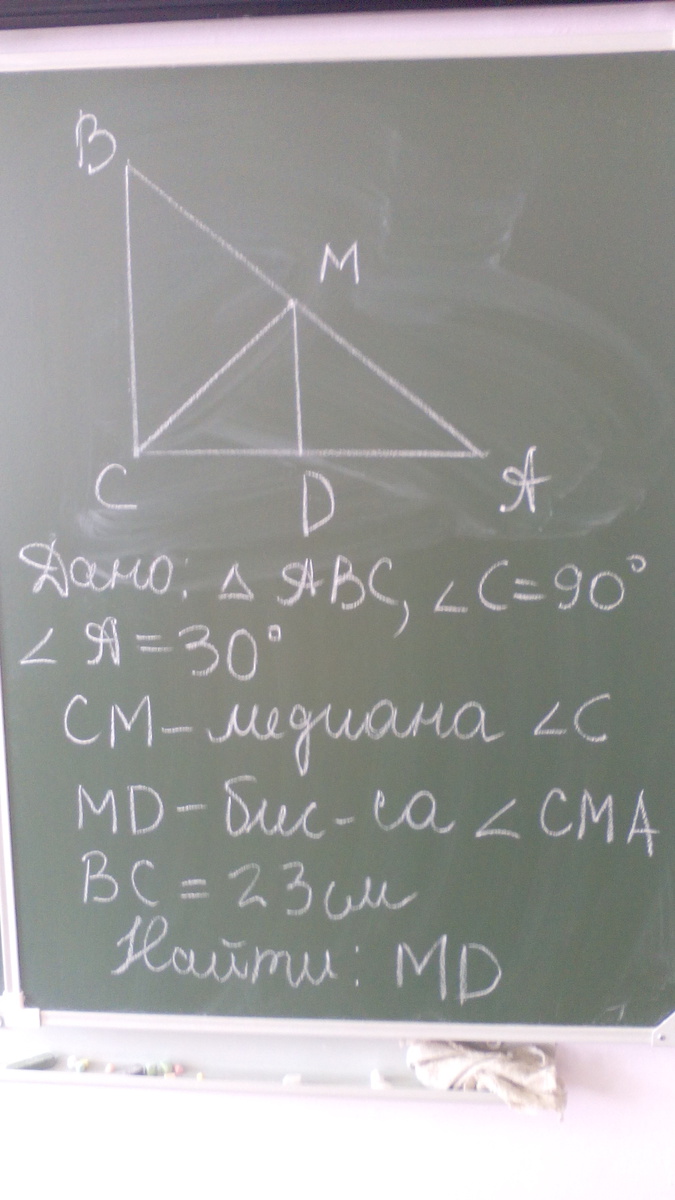 B
M
C
D
A
Дано: △ ABC, ∠C=90°
∠ A=30°
CM-медиана ∠C
MD-бис-са ∠CMA
BC=23см
Найти: MD